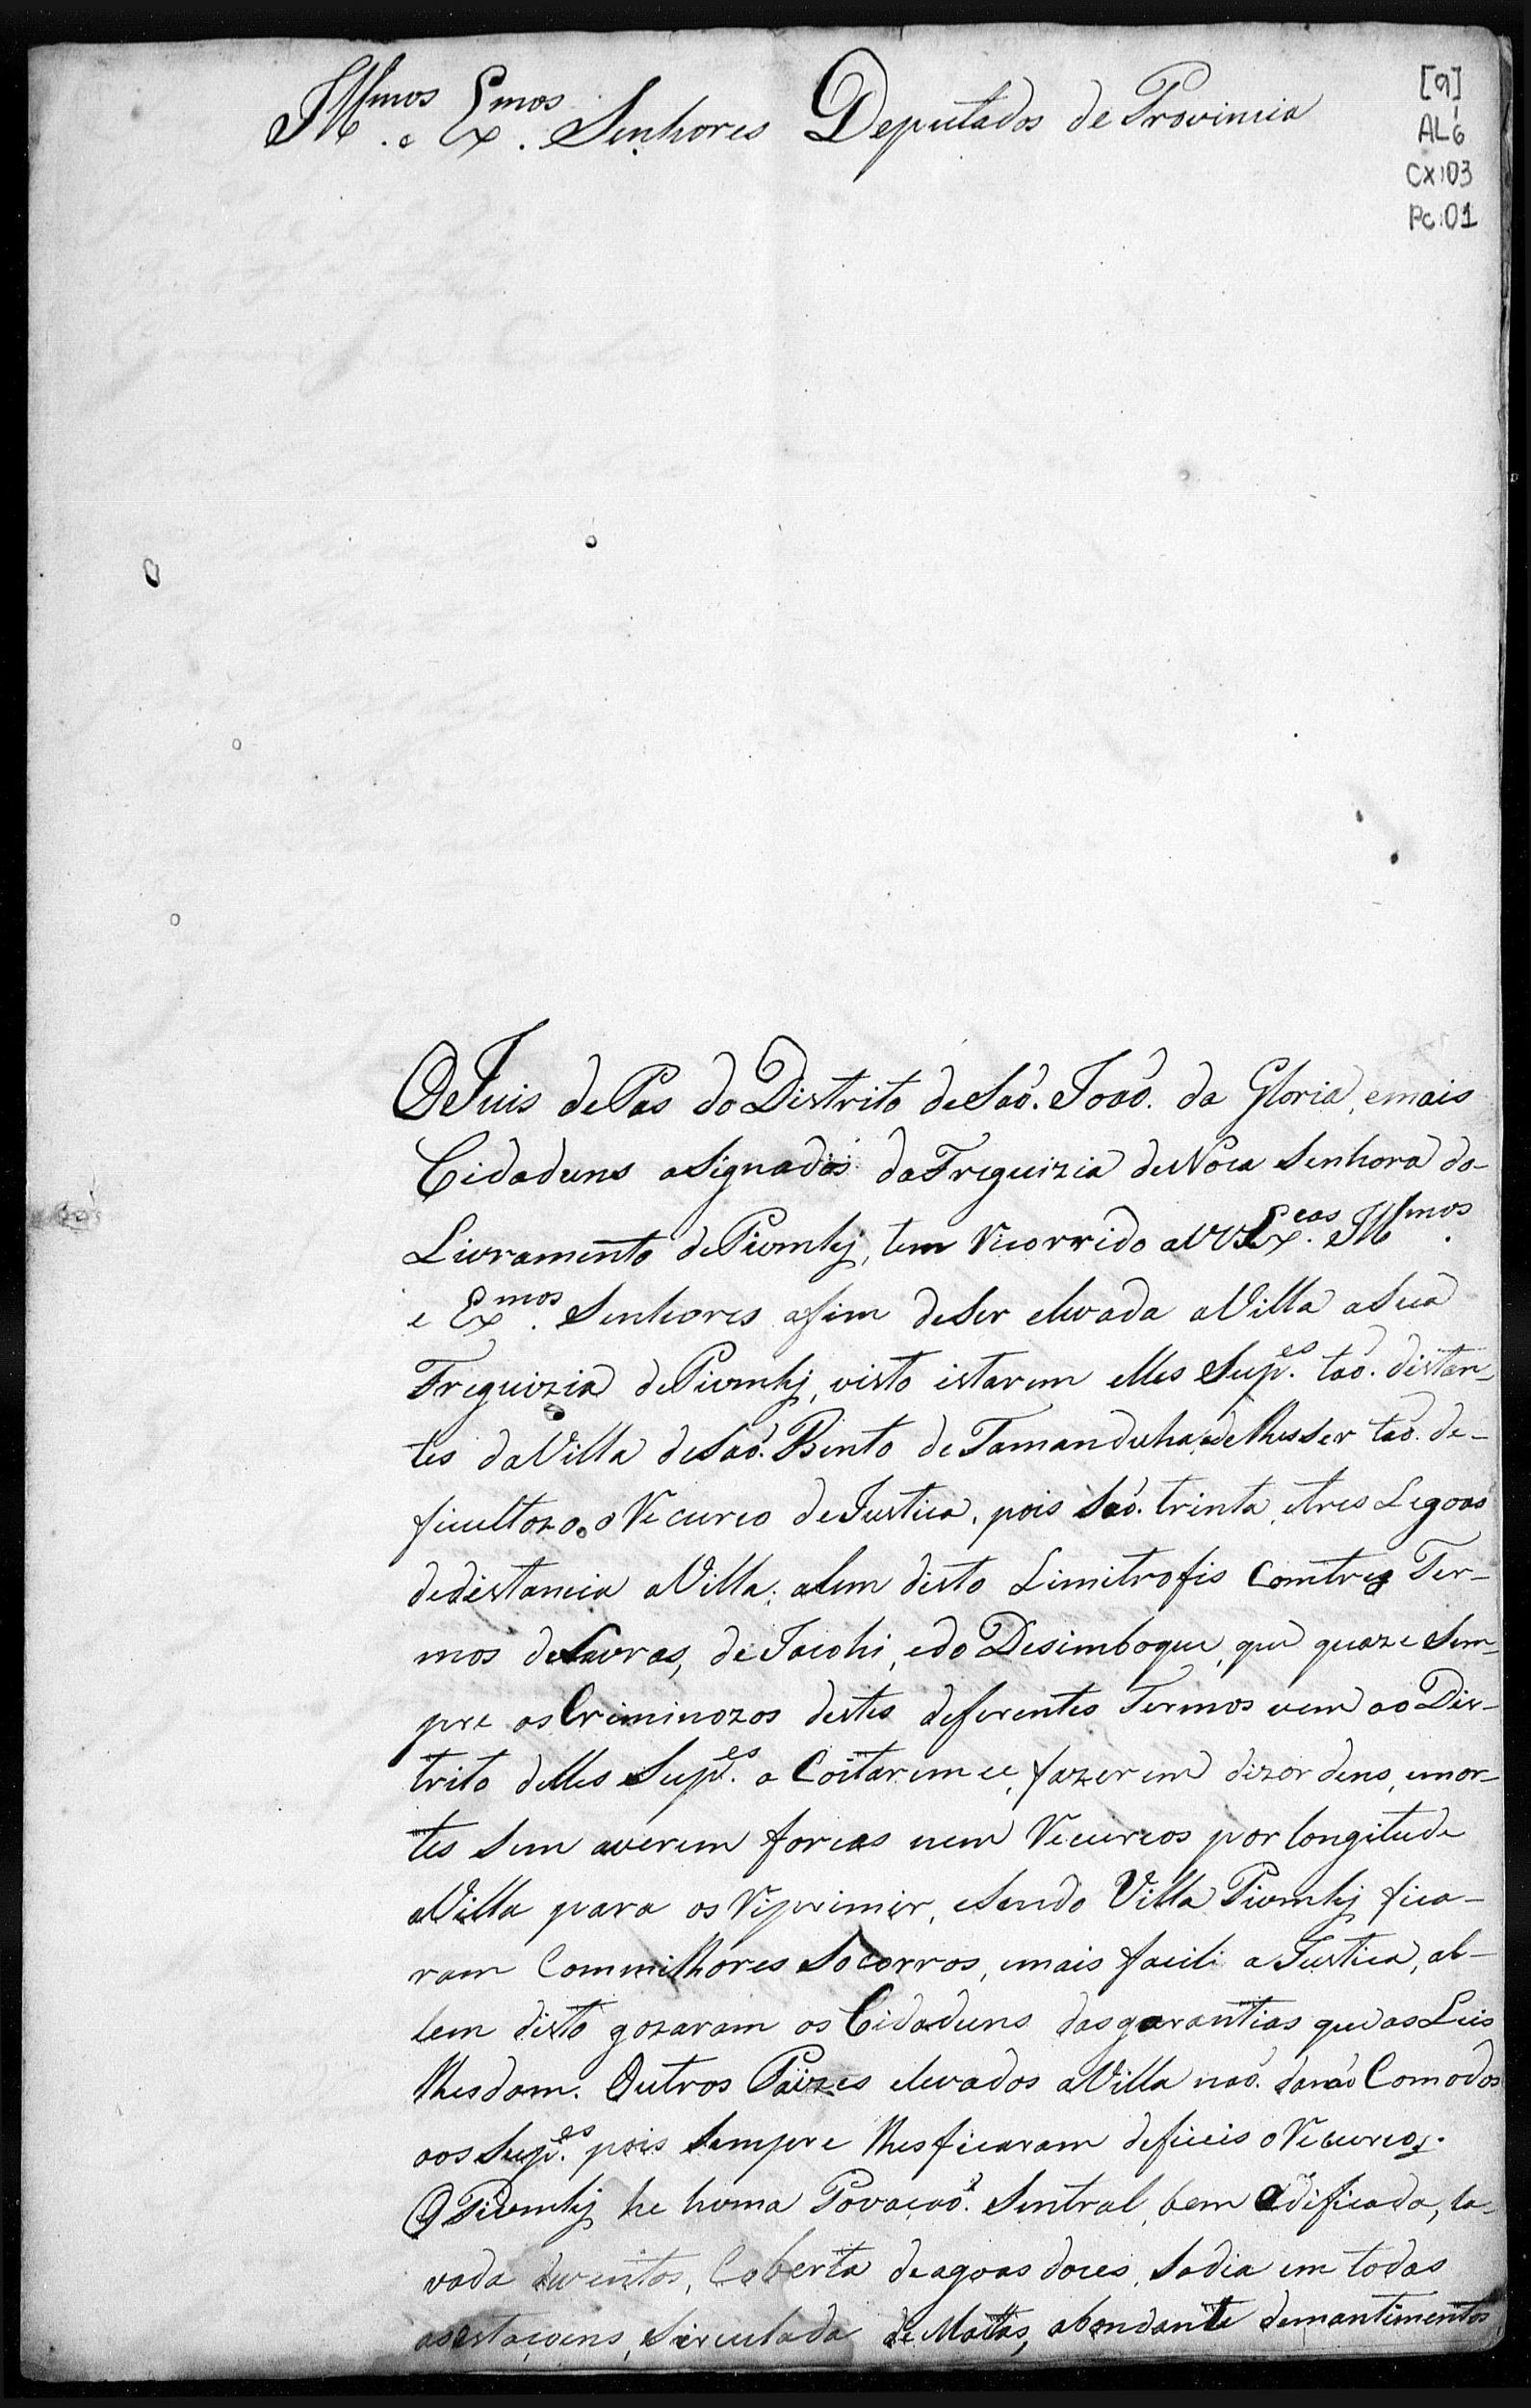 Illmos. e Exmos. Senhores Deputados de Provincia
[9]
AL6
CX:03
Pc:01
O Juis de Pas do Distrito de Saõ. Joaõ. da Gloria, emais
Cidaduns asignados da Freguizia de Noça Senhora do
Livramento de Piumhj, tem Recorrido a VVExcas. Illmos.
e Exmos. Senhores afim deser elevada aVilla asua
Freguizia de Piumhj, visto istarem elles Supes. taõ. distan-
tes daVilla de Saõ. Bento de Tamanduha, de lhesser taõ. de-
ficultozo, o Recurco de Justica, pois Saõ. trinta, etres Legoas
dedistancia aVilla; alem disto Limitrofis comtres Ter-
mos de Lavras, de Jacohi, edo Desimboque, que quaze sem-
pre os Criminozos destes deferentes Termos vem ao Dis-
trito delles Supes. a Coitaremce, fazerem dizordens, emor-
tes sem averem forcas nem Recurcos por longitude
aVilla para os Riprimir, esendo Villa Piumhj fica-
ram Commilhores Socorros, emais facili a Justica, al-
lem disto gozaram os Cidaduns dasgarantias que as Leis
lhesdam. Outros Paizes elevados aVilla naõ. daraõ Comodos
aos Supes. pois sempre lhesficaram deficeis o Recurcos.
O Piumhj he huma Povaçaõ. Sentral, bem edificada, la-
vada deventos, Coberta deagoas doces, Sadia em todas
asestaçoens, Sirculada de Mattas, abondante demantimentos